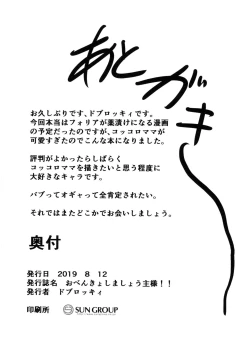 あとガキ
お久しぶりです、ドブロッキィです。
今回本当はフォリアが薬漬けになる漫画
の予定だったのですが、コッコロママが
可愛すぎたのでこんな本になりました。
評判がよかったらしばらく
コッコロママを描きたいと思う程度に
大好きなキャラです。
バブってオギャって全肯定されたい。
それではまたどこかでお会いしましょう。
奥付
発行日 2019 8 12
発行誌名 おべんきょしましょう主様!!
発行者 ドブロッキィ
印刷所 SUN GROUP